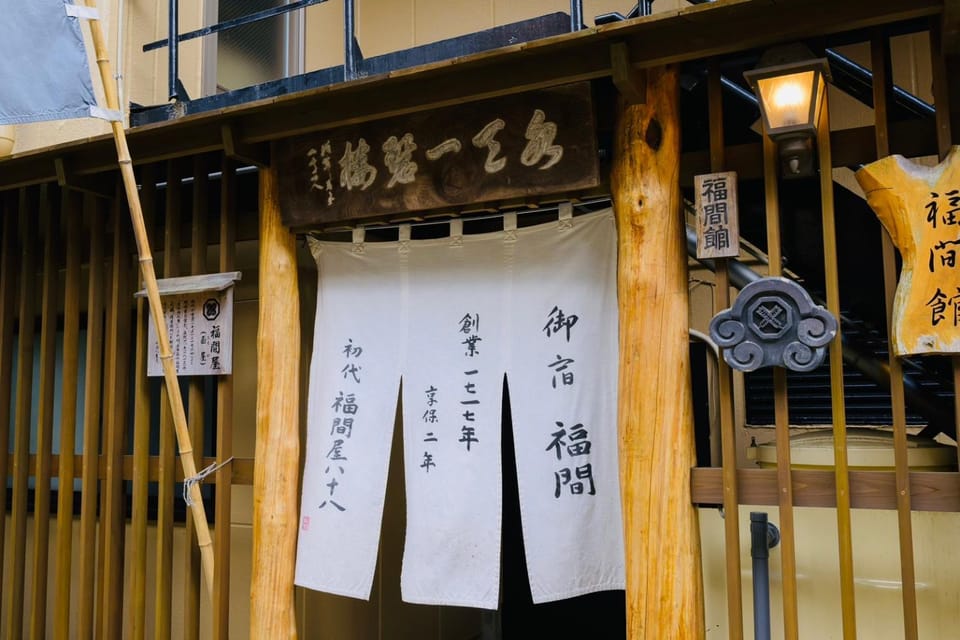 水天一碧楼
御宿 福間
創業一七一七年
享保二年
初代 福間屋八十八
福間館
福間館
福間屋